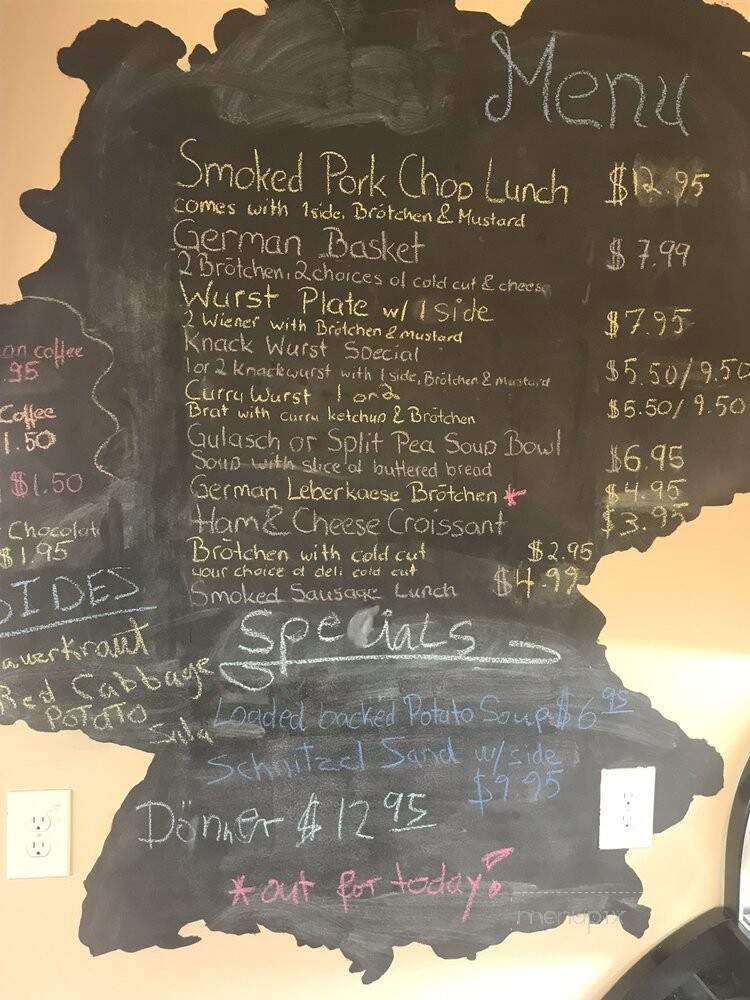 Menu
Smoked Pork Chop Lunch $12.95
comes with 1side, Brötchen & Mustard
German Basket $7.99
2 Brötchen, 2 choices of cold cut & chees
Wurst Plate w/ 1 side $7.95
2 Wiener with Brötchen & Mustard
Knack Wurst Special $5.50/9.50
1 or 2 Knackwurst with 1 side, Brötchen & Mustard
Curry Wurst 1 or 2 $5.50/9.50
Brat with curry ketchup & Brötchen
Gulasch or Split Pea Soup Bowl $6.95
Soup with slice of buttered bread
German Leberkaese Brötchen * $4.95
Ham & Cheese Croissant $3.95
Brötchen with cold cut $2.95
your choice of deli cold cut
Smoked Sausage Lunch $4.99
an coffee
.95
Coffee
1.50
$1.50
Chocolat
$1.95
SIDES
auerkraut
Red Cabbage
POTATO Sala
Specials
Loaded backed Potato Soup $6 95
Schnitzel Sand w/ side
$9.95
Dönner $12 95
*out for today!
menupix